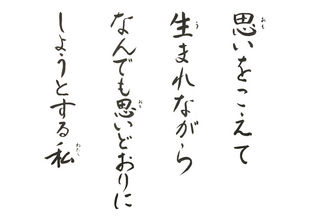 思いをこえて
生まれながら
なんでも思いどおりに
しようとする私